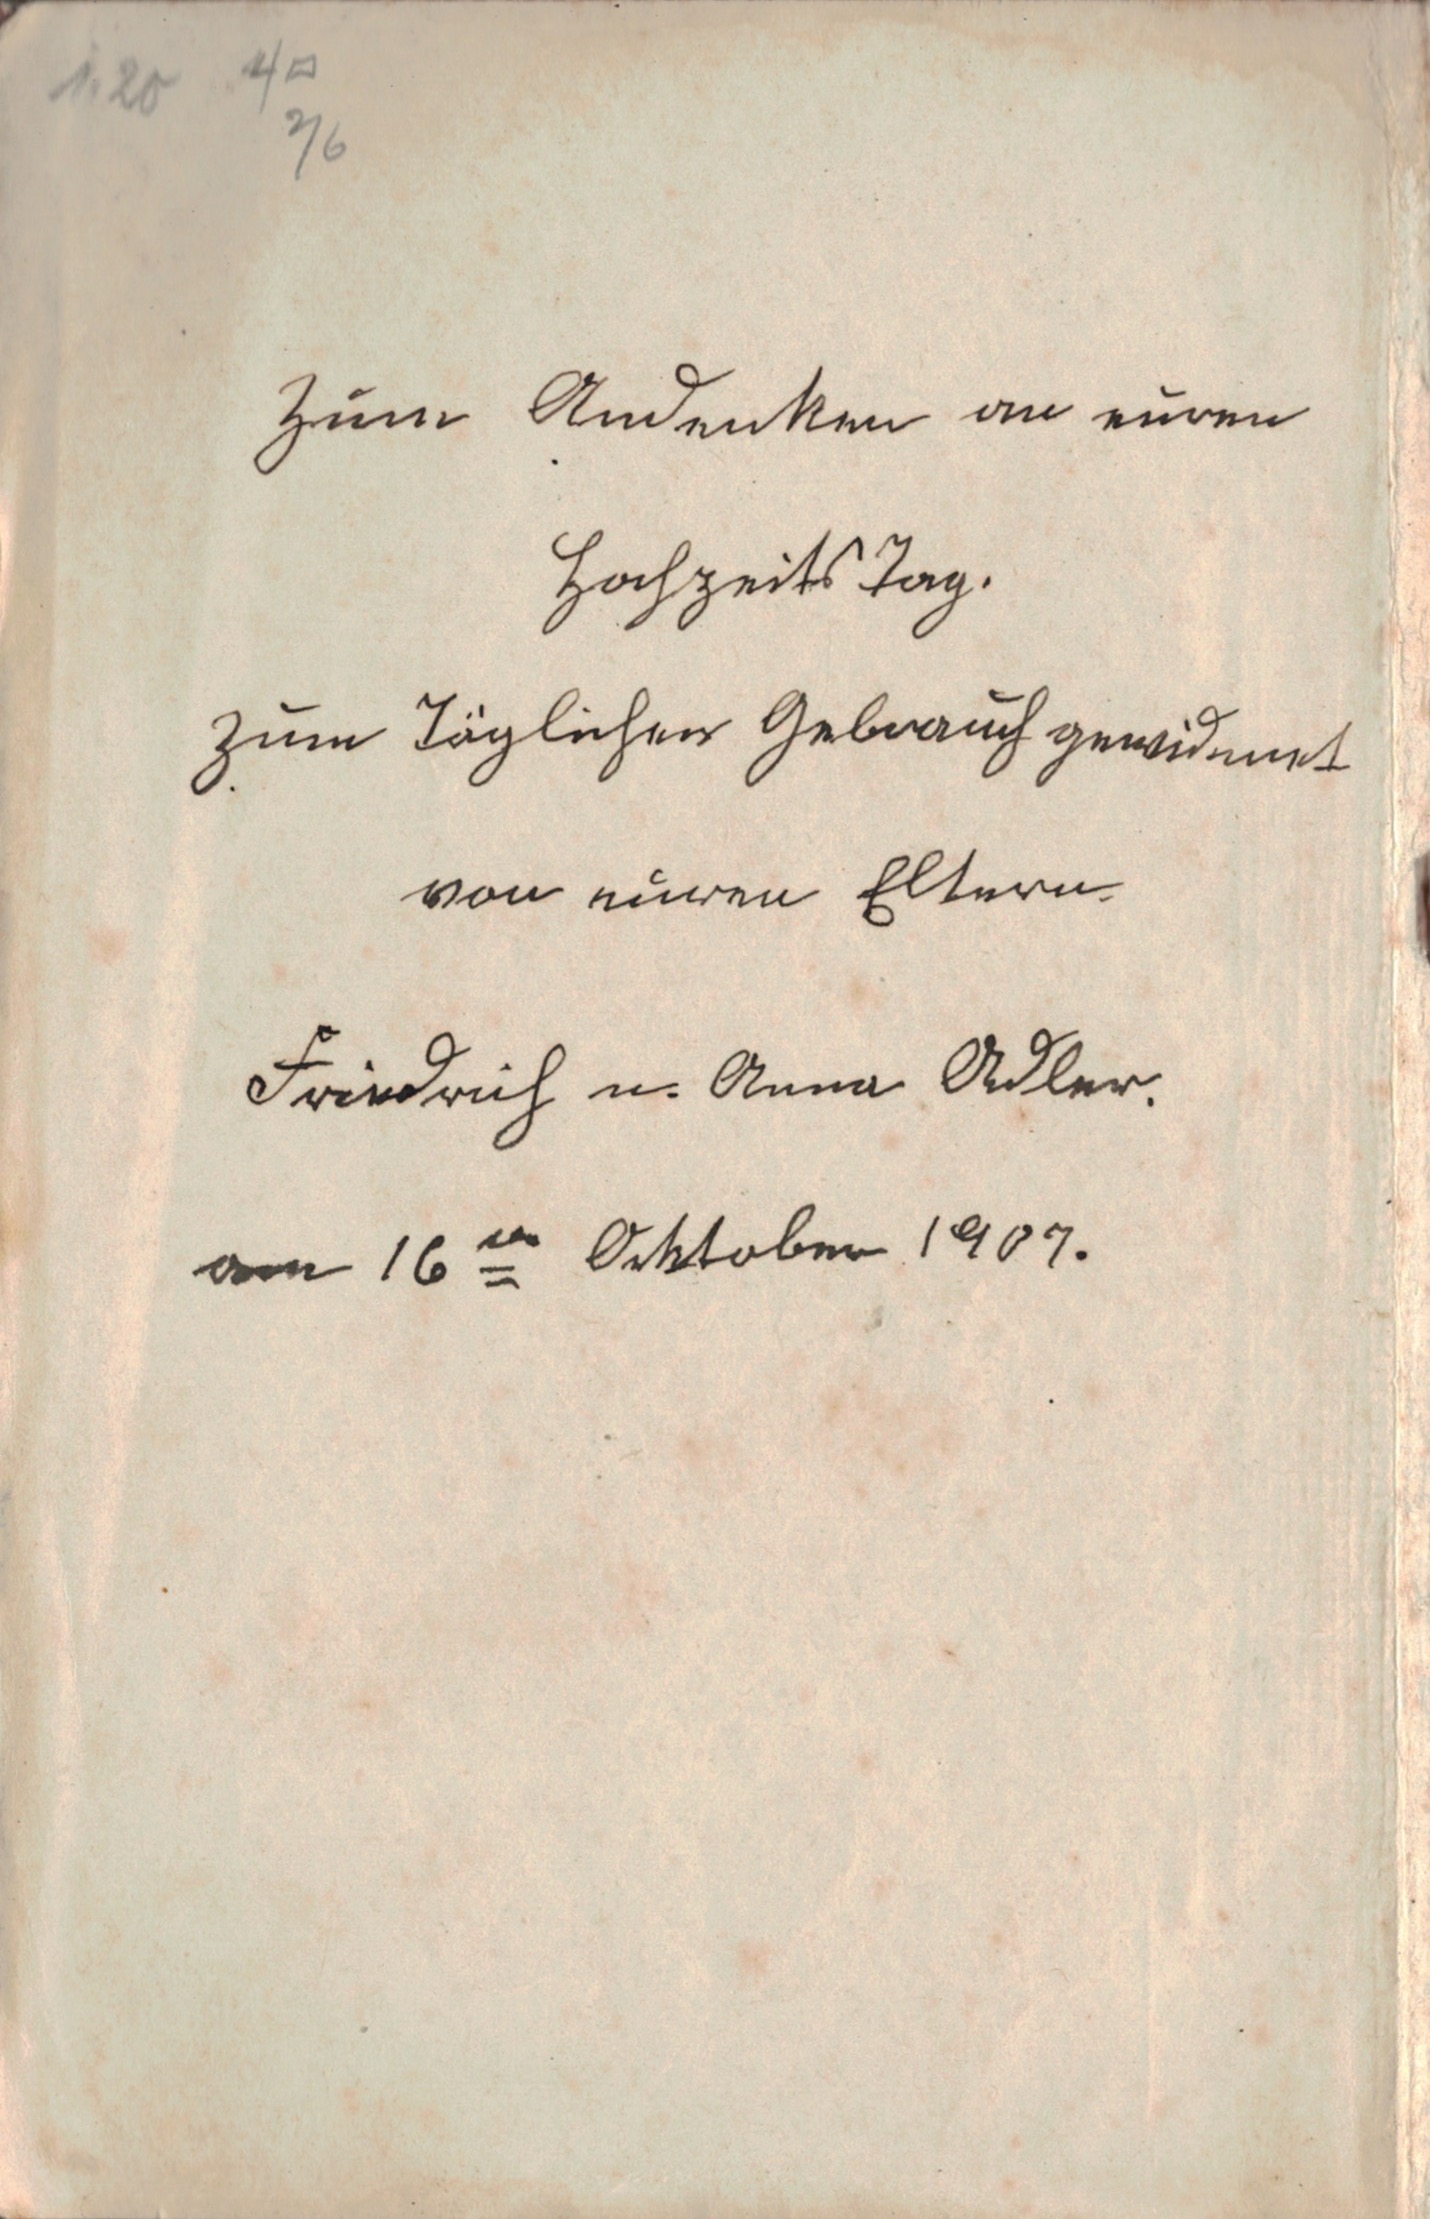 1.20 4□
2/6
Zum Andenken an euren
Hochzeits Tag.
zum Täglichen Gebrauch gewidmet
von euren Eltern.
Friedrich u. Anna Adler.
am 16ten Oktober 1907.